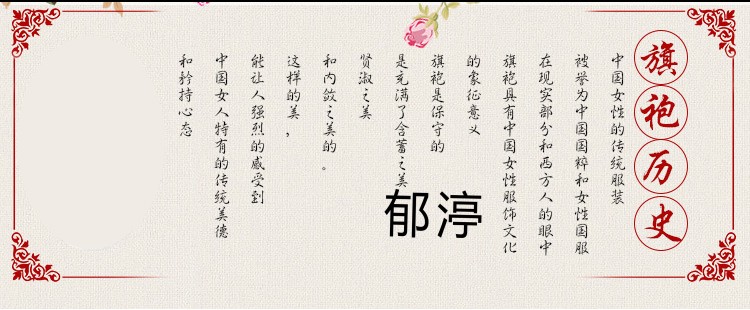 旗袍历史
中国女性的传统服装
被誉为中国国粹和女性国服
在现实部分和西方人的眼中
旗袍具有中国女性服饰文化
的象征意义
旗袍是保守的
是充满了含蓄之美
贤淑之美
和内敛之美的。
这样的美，
能让人强烈的感受到
中国女人特有的传统美德
和矜持心态
郁渟